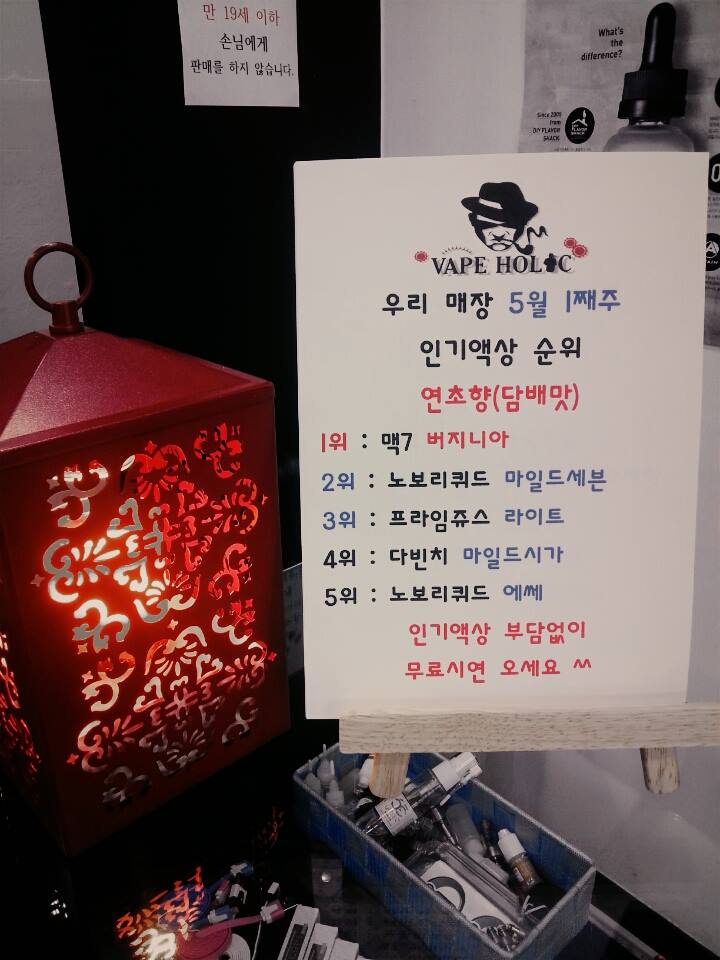 만 19세 이하
손님에게
판매를 하지 않습니다.
What's
the
difference?
Since 2005
from
DIY FLAVOR
SHACK
VAPE HOLIC
우리 매장 5월 1째주
인기액상 순위
연초향(담배맛)
1위 : 맥7 버지니아
2위 : 노보리쿼드 마일드세븐
3위 : 프라임쥬스 라이트
4위 : 다빈치 마일드시가
5위 : 노보리쿼드 에쎄
인기액상 부담없이
무료시연 오세요 ^^